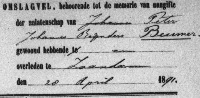 OMSLAGVEL, behoorende tot de memorie van aangifte
der nalatenschap van Johannes Peter
Johannes Reijnders Beumer
gewoond hebbende te
overleden te Zaandam
den 20 April 1891.